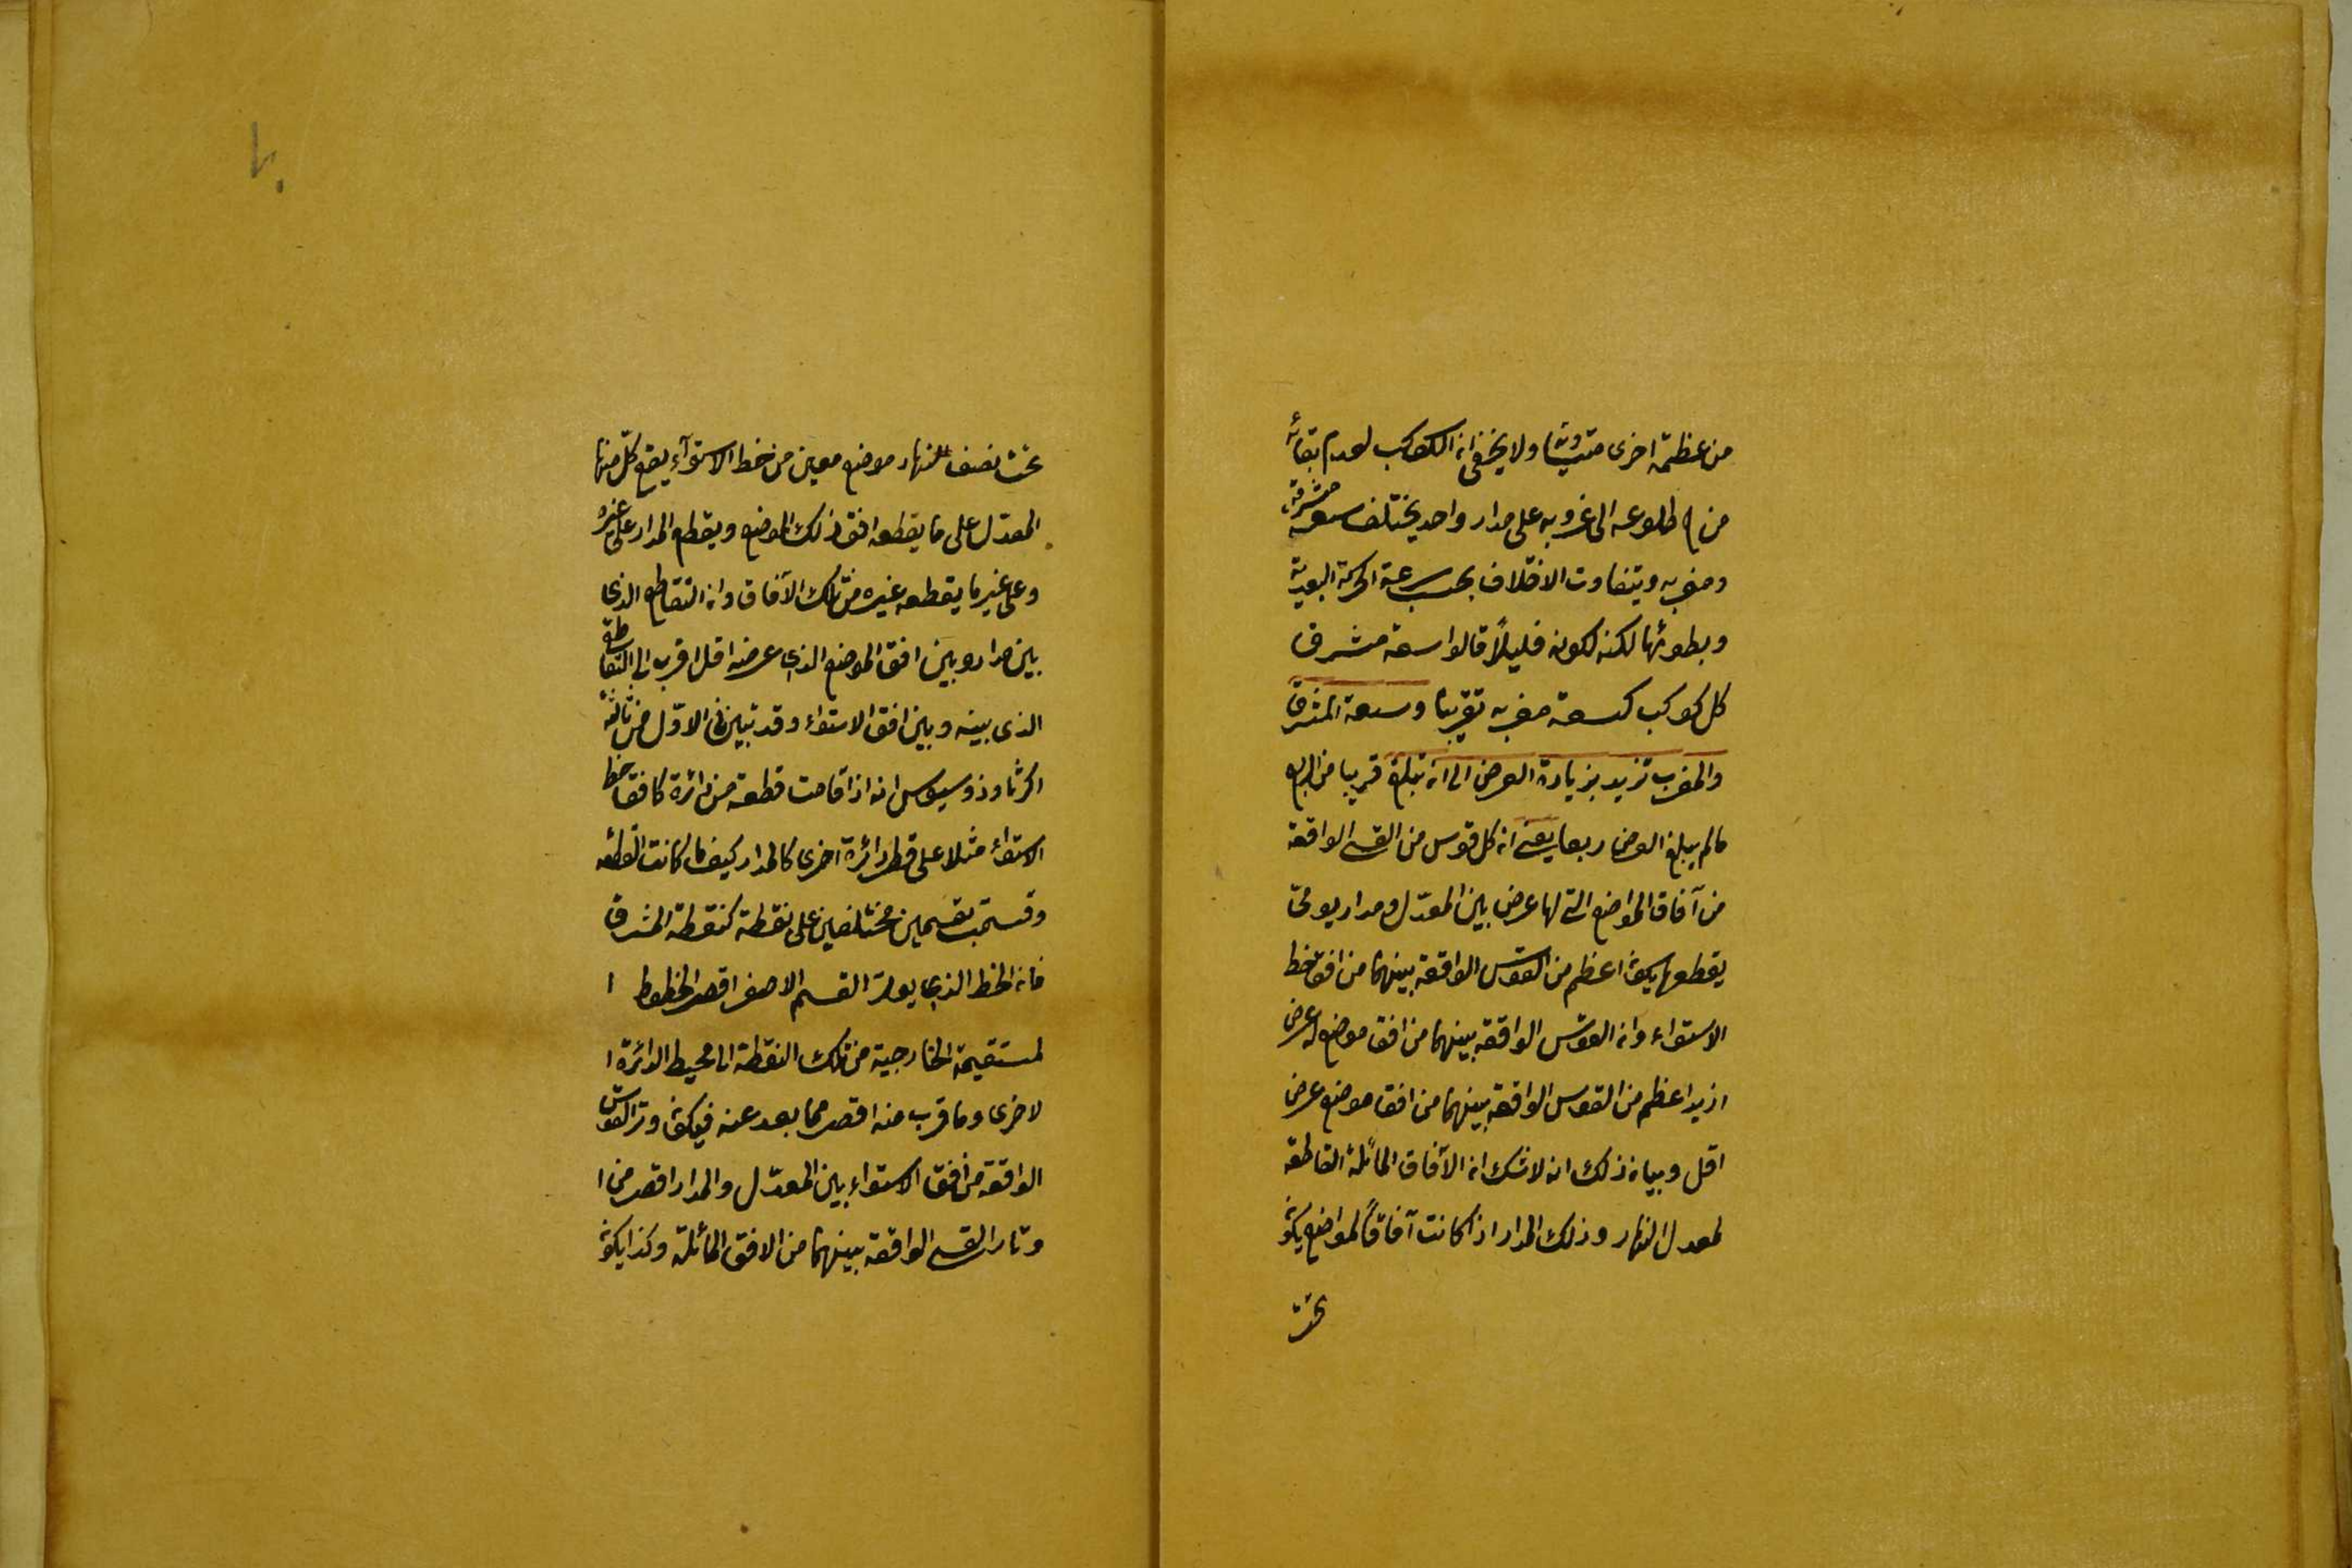 من عظمة اخرى متساويتان ولا يخفى ان الكوكب لعدم بقائه
من طلوعه الى غروبه على مدار واحد يختلف سعة مشرقه
ومغربه ويتفاوت الاختلاف بحسب سرعة الحركة البعدية
وبطوئها لكنه لكونه قليلاً قالوا سعة مشرق
كل كوكب كسعة مغربه تقريبا وسعة المشرق
والمغرب تزيد بزيادة العرض الى ان تبلغ قريبا من الربع
مالم يبلغ العرض ربعا يعنى ان كل قوس من القسى الواقعة
من آفاق المواضع التى لها عرض بين المعدّل ومدار يومىّ
يقطعها يكون اعظم من القوس الواقعة بينهما من افق خط
الاستواء وان القوس الواقعة بينهما من افق موضع له عرض
ازيد اعظم من القوس الواقعة بينهما من افق موضع عرضه
اقل وبيان ذلك انه لا شك ان الآفاق المائلة القاطعة
لمعدل النهار وذلك المدار اذا كانت آفاقاً لمواضع يكون
تحت
تحت نصف النهار موضع معين من خط الاستوآء يقع كلّ منها
المعدّل على ما يقطعه افق ذلك الموضع ويقطع المدار على غيره
وعلى غير ما يقطعه غيره من تلك الآفاق وان التقاطع الذى
بين مدار وبين افق الموضع الذى عرضه اقل اقرب الى التقاطع
الذى بينه وبين افق الاستواء وقد تبين فى الاوّل من ثالثة
اكر ثاوذوسيوس انه اذا قامت قطعة من دائرة كافق خط
الاستواء مثلا على قطر دائرة اخرى كالمدار كيف ما كانت القطعة
وقسمت بقسمين مختلفين على نقطة كنقطة المشرق
فان الخط الذى يوتر القسم الاصغر اقصر الخطوط ا
لمستقيمة الخارجية من تلك النقطة الى محيط الدائرة ا
لاخرى وما قرب منه اقصر مما بعد عنه فيكون وتر القوس
الواقعة من افق الاستواء بين المعدّل والمدار اقصر من ا
وتار القسى الواقعة بينهما من الافق المائلة وكذا يكون